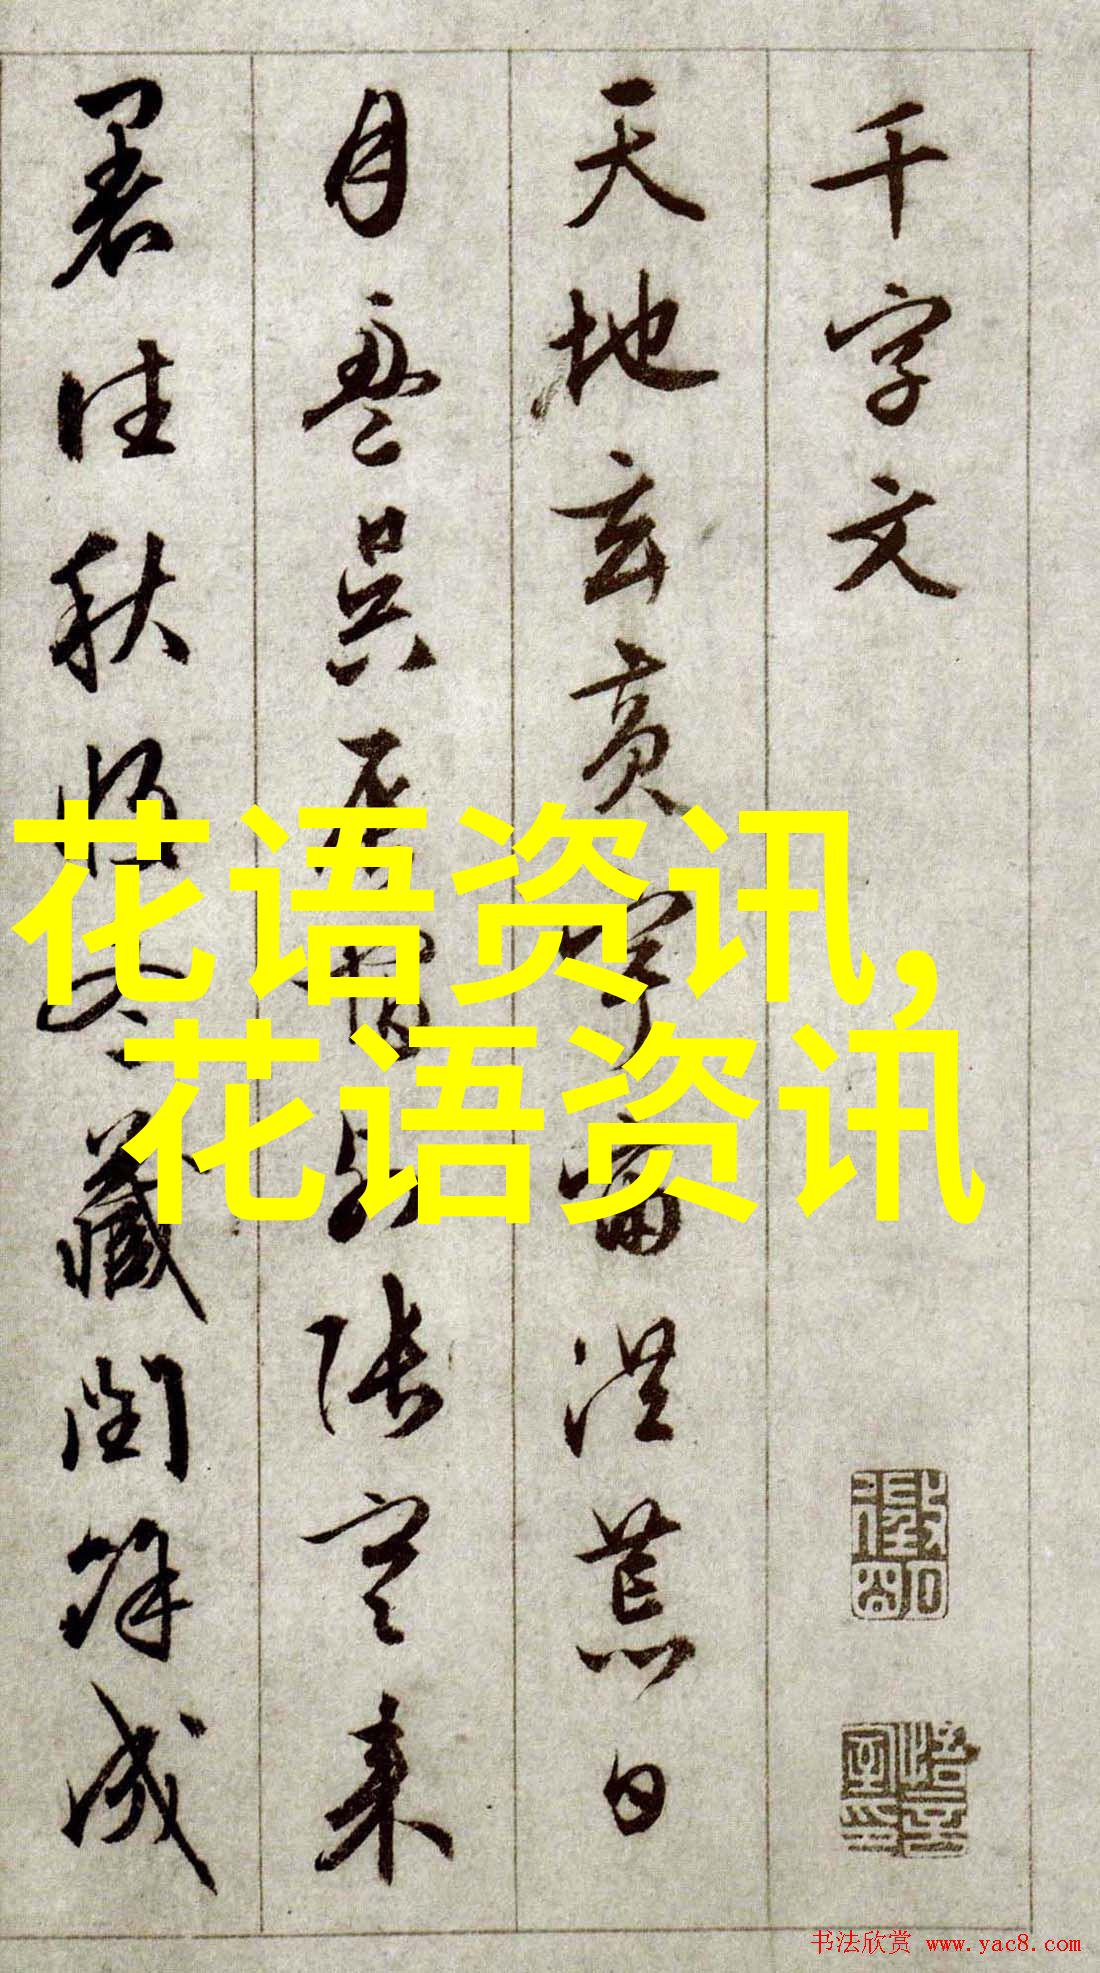 千字文
天地玄黄宇宙洪荒日
月盈昃辰宿列张寒来
暑往秋收冬藏闰馀成
花语资讯,
花语资讯
书法欣赏 www.yac8.com